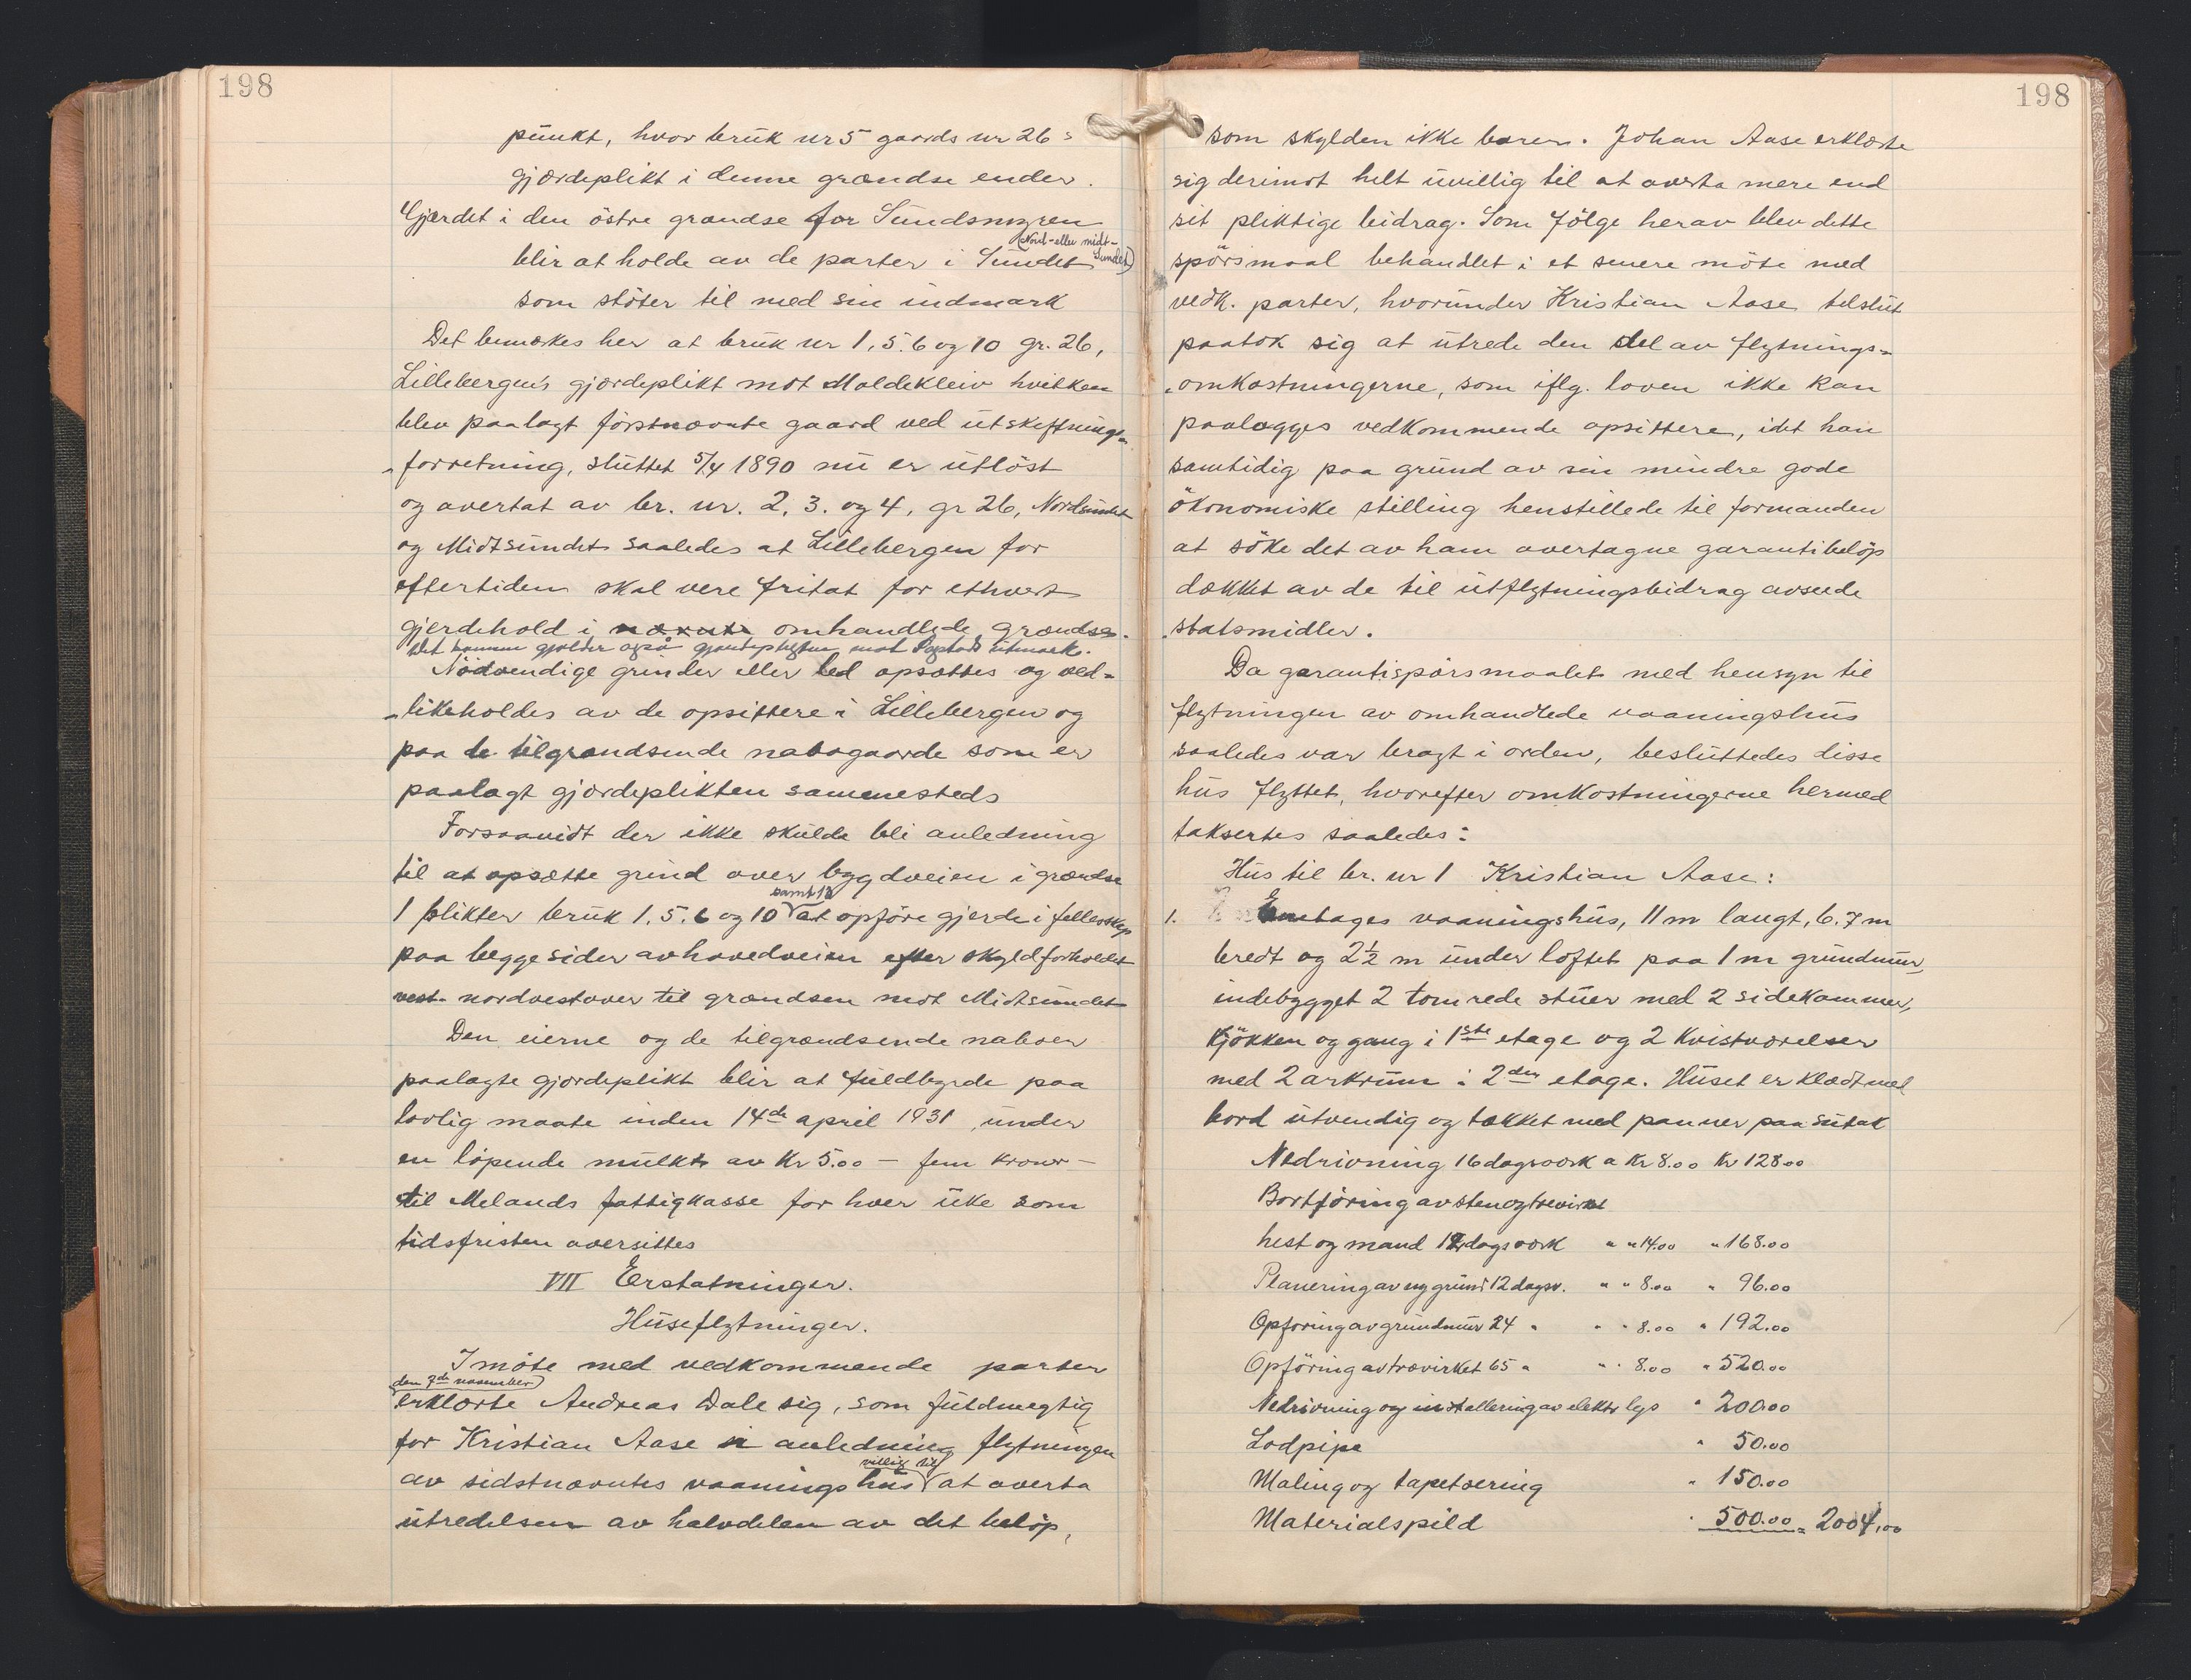 198
punkt, hvor bruk nr 5 gaards nr 26s
gjærdeplikt i denne grændse ender.
Gjærdet i den östre grændse for Sundsmyren
(Nord- eller midt-
Sundet)
blir at holde av de parter i Sundet
som stöter til med sin indmark
Det bemerkes her at bruk nr 1, 5. 6 og 10 gr. 26,
Lillebergens gjærdeplikt mot Moldekleiv hvilken
blev paalagt förstnævnte gaard ved utskiftnings-
-forretning, sluttet 5/4 1890 nu er utlöst
og overtat av br. nr. 2, 3. og 4, gr 26, Nordsundet
og Midtsundet saaledes at Lillebergen for
eftertiden skal vere fritat for ethvert
gjerdehold i nævnte omhandlede grændse.
Det samme gjælder også gjærdepligten mot Rogstads utmark.
Nödvendige grinder eller led opsættes og ved-
-likeholdes av de opsittere i Lillebergen og
paa de tilgrændsende nabogaarde som er
paalagt gjærdeplikten sammesteds
Forsaavidt der ikke skulde bli anledning
til at opsætte grind over bygdveien i grændse
samt 12
1 plikter bruk 1. 5. 6 og 10 at opföre gjerde i fellesskap
paa begge sider av hovedveien efter skyldforholdet
vest- nordvestover til grændsen mot Midtsundet
Den eierne og de tilgrændsende naboer
paalagte gjærdeplikt blir at fuldbyrde paa
lovlig maate inden 14de april 1931 under
en löpende mulkt av Kr 5.00 - fem kroner -
til Melands fattigkasse for hver uke som
tidsfristen oversittes
VII Erstatninger.
Huseflytninger.
I möte med vedkommende parter
den 7de november
erklærte Andreas Dale sig, som fuldmegtig
for Kristian Aase i anledning flytningen
villig til
av sidstnævntes vaaningshus at overta
utredelsen av halvdelen av det belöp,
198
som skylden ikke bærer. Johan Aase erklærte
sig derimot helt uvillig til at overta mere end
sit pliktige bidrag. Som fölge herav blev dette
spörsmaal behandlet i et senere möte med
vedk. parter, hvorunder Kristian Aase tilslut
paatok sig at utrede den del av flytnings-
-omkostningerne, som iflg. loven ikke kan
paalægges vedkommende opsittere, idet han
samtidig paa grund av sin mindre gode
ökonomiske stilling henstillede til formanden
at söke det av ham overtagne garantibelöp
dækket av de til utflytningsbidrag avseede
statsmidler.
Da garantispörsmaalet med hensyn til
flytningen av omhandlede vaaningshus
saaledes var bragt i orden, besluttedes disse
hus flyttet, hvorefter omkostningerne hermed
taksertes saaledes:
Hus til br. nr 1 Kristian Aase:
1. Enetages vaaningshus, 11 m langt, 6.7 m
bredt og 2½ m under loftet paa 1 m grundmur,
indebygget 2 tømrede stuer med 2 sidekammer,
kjökken og gang i 1ste etage og 2 kvistværelser
med 2 arkrum i 2den etage. Huset er klædt med
bord utvendig og tækket med panner paa sutak
Nedrivning 16 dagsværk a Kr 8.00 Kr 128.00
Bortföring av sten og trevirke
hest og mand 12 dagsværk " " 14.00 " 168.00
Planering av ny grund 12 dagsv. " " 8.00 " 96.00
Opföring av grundmur 24 " " " 8.00 " 192.00
Opföring av trævirket 65 " " " 8.00 " 520.00
Nedrivning og installering av elektr lys " 200.00
Lodpipe " 50.00
Maling og tapetsering " 150.00
Materialspild " 500.00 = 2004,00